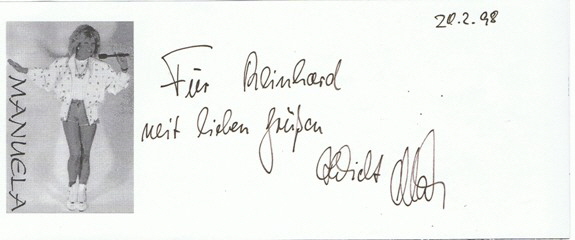 20.2.98
MANUELA
Für Reinhard
mit lieben Grüßen